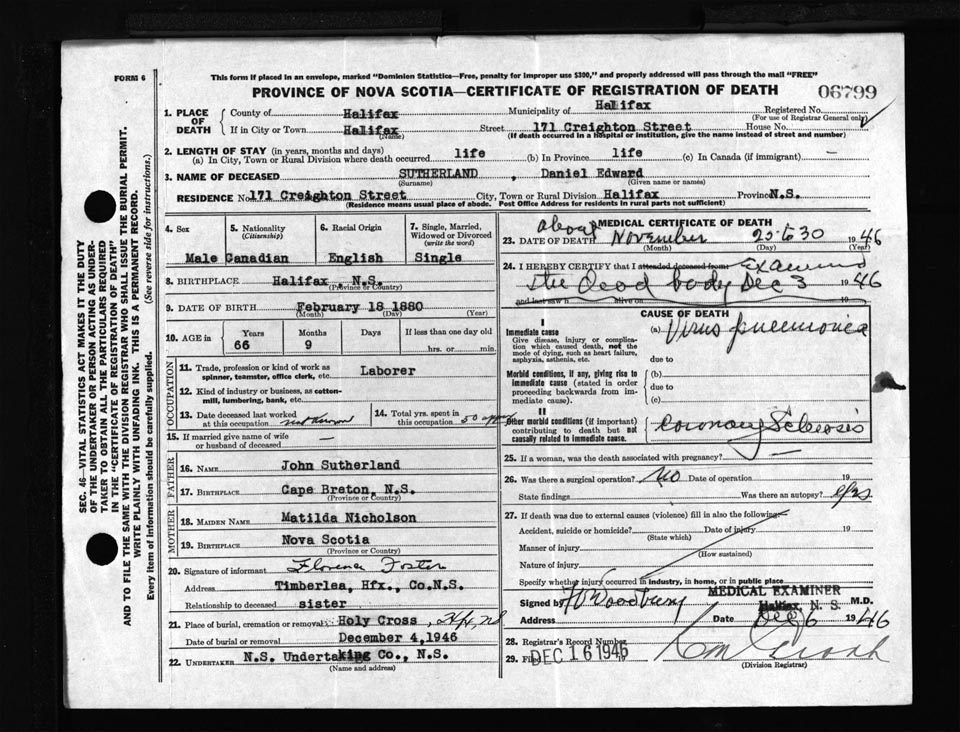 FORM 6
This form if placed in an envelope, marked "Dominion Statistics—Free, penalty for improper use $300," and properly addressed will pass through the mail "FREE"
PROVINCE OF NOVA SCOTIA—CERTIFICATE OF REGISTRATION OF DEATH 06799
1. PLACE OF DEATH
County of Halifax Municipality of Halifax Registered No.
(For use of Registrar General only)
If in City or Town Halifax Street 171 Creighton Street House No.
(Name) (If death occurred in a hospital or institution, give the name instead of street and number)
2. LENGTH OF STAY (in years, months and days)
(a) In City, Town or Rural Division where death occurred life (b) In Province life (c) In Canada (if immigrant) —
3. NAME OF DECEASED SUTHERLAND , Daniel Edward
(Surname) (Given name or names)
RESIDENCE No 171 Creighton Street City, Town or Rural Division Halifax Province N.S.
(Residence means usual place of abode. Post Office Address for residents in rural parts not sufficient)
4. Sex
Male
5. Nationality
(Citizenship)
Canadian
6. Racial Origin
English
7. Single, Married, Widowed or Divorced
(write the word)
Single
8. BIRTHPLACE Halifax N.S.
(Province or Country)
9. DATE OF BIRTH February 18 1880
(Month) (Day) (Year)
10. AGE in
Years Months Days If less than one day old
66 9 hrs. or min.
OCCUPATION
11. Trade, profession or kind of work as spinner, teamster, office clerk, etc. Laborer
12. Kind of industry or business, as cotton-mill, lumbering, bank, etc.
13. Date deceased last worked at this occupation not known
14. Total yrs. spent in this occupation 50 approx
15. If married give name of wife or husband of deceased —
FATHER
16. NAME John Sutherland
17. BIRTHPLACE Cape Breton, N.S.
(Province or Country)
MOTHER
18. MAIDEN NAME Matilda Nicholson
19. BIRTHPLACE Nova Scotia
(Province or Country)
20. Signature of informant Florence Foster
Address Timberlea, Hfx., Co.N.S.
Relationship to deceased sister
21. Place of burial, cremation or removal Holy Cross, Hfx, NS
Date of burial or removal December 4,1946
22. UNDERTAKER N.S. Undertaking Co., N.S.
(Name and address)
MEDICAL CERTIFICATE OF DEATH
about
23. DATE OF DEATH November 25 to 30 1946
(Month) (Day) (Year)
24. I HEREBY CERTIFY that I attended deceased from Examined
the dead body Dec 3 1946
and last saw h alive on 19
CAUSE OF DEATH
I
Immediate cause
Give disease, injury or complication which caused death, not the mode of dying, such as heart failure, asphyxia, asthenia, etc.
(a) Virus pneumonia
due to
Morbid conditions, if any, giving rise to immediate cause (stated in order proceeding backwards from immediate cause).
(b)
due to
(c)
II
Other morbid conditions (if important) contributing to death but not causally related to immediate cause.
Coronary Sclerosis
25. If a woman, was the death associated with pregnancy? —
26. Was there a surgical operation? No Date of operation 19
State findings Was there an autopsy? yes
27. If death was due to external causes (violence) fill in also the following:
Accident, suicide or homicide? Date of injury 19
(State which)
Manner of injury
(How sustained)
Nature of injury
Specify whether injury occurred in industry, in home, or in public place
MEDICAL EXAMINER
Signed by Halifax, N. S. M.D.
Address Date Dec 6 1946
28. Registrar's Record Number
29. DEC 16 1946
(Division Registrar)
SEC. 46—VITAL STATISTICS ACT MAKES IT THE DUTY
OF THE UNDERTAKER OR PERSON ACTING AS UNDERTAKER TO OBTAIN ALL THE PARTICULARS REQUIRED
IN THE "CERTIFICATE OF REGISTRATION OF DEATH"
AND TO FILE THE SAME WITH THE DIVISION REGISTRAR WHO SHALL ISSUE THE BURIAL PERMIT.
WRITE PLAINLY WITH UNFADING INK. THIS IS A PERMANENT RECORD.
Every item of information should be carefully supplied. (See reverse side for instructions.)